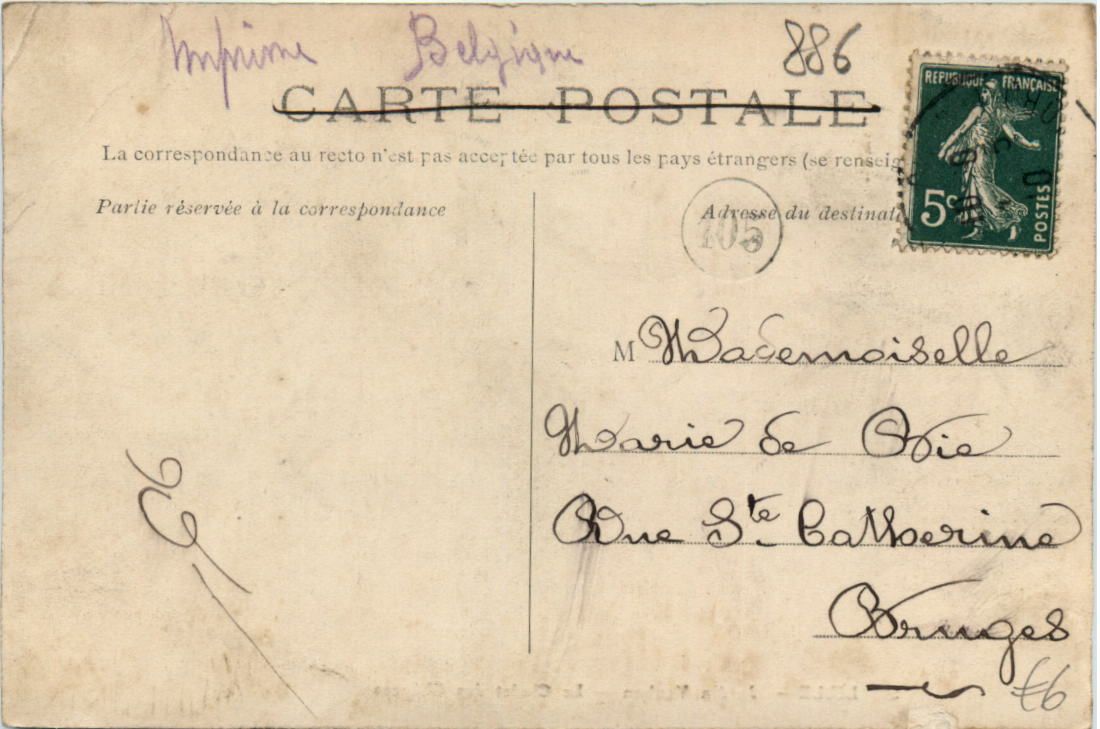 Imprimé Belgique
886
CARTE POSTALE
La correspondance au recto n'est pas acceptée par tous les pays étrangers (se renseig
Partie réservée à la correspondance
Adresse du destinat
REPUBLIQUE FRANÇAISE
5c
POSTES
105
M Mademoiselle
Marie de Bie
Rue Ste Catherine
Bruges
£6